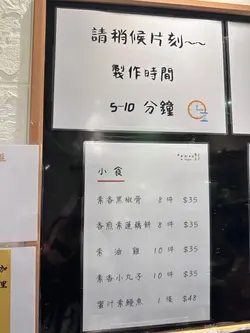 請稍候片刻~~
製作時間
5-10 分鐘
小食
素香黑椒骨 8 件 $35
香煎素蓮藕餅 8 件 $35
素油雞 10 件 $35
素香小丸子 10 件 $35
蜜汁素鰻魚 1 條 $48
加
里